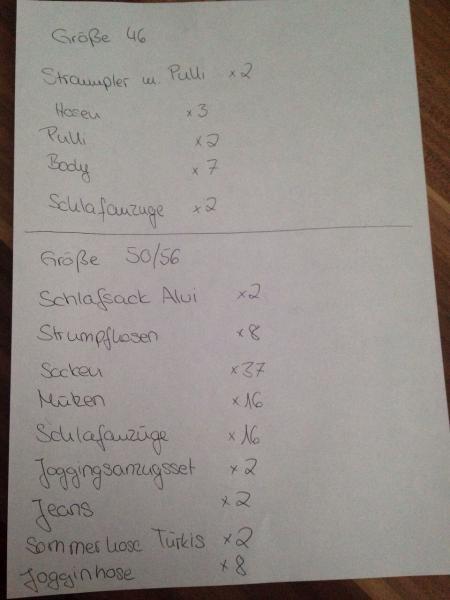 Größe 46
Strampler m. Pulli x2
Hosen x3
Pulli x2
Body x7
Schlafanzuge x2
Größe 50/56
Schlafsack Alvi x2
Strumpfhosen x8
Socken x37
Müken x16
Schlafanzüge x16
Joggingsanzugsset x2
Jeans x2
Sommerhose Türkis x2
Jogginhose x8